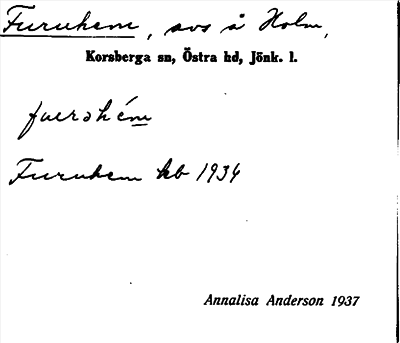 Furuhem, avs å Holm,
Korsberga sn, Östra hd, Jönk. l.
fuerəhém
Furuhem kb 1934
Annalisa Anderson 1937